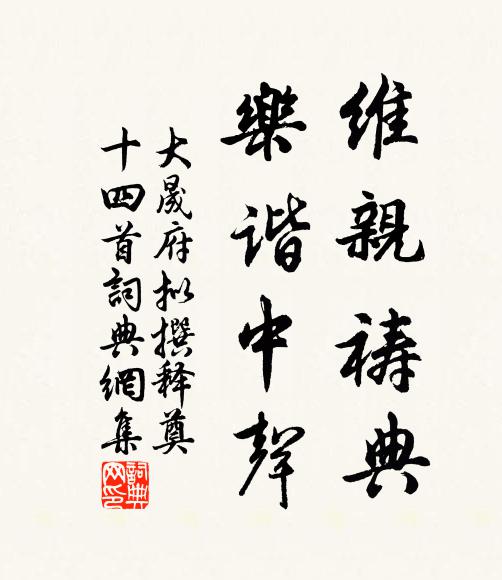 維親祷典
樂谐中聲
大晟府拟撰释奠
十四首詞典網集
詞典网印